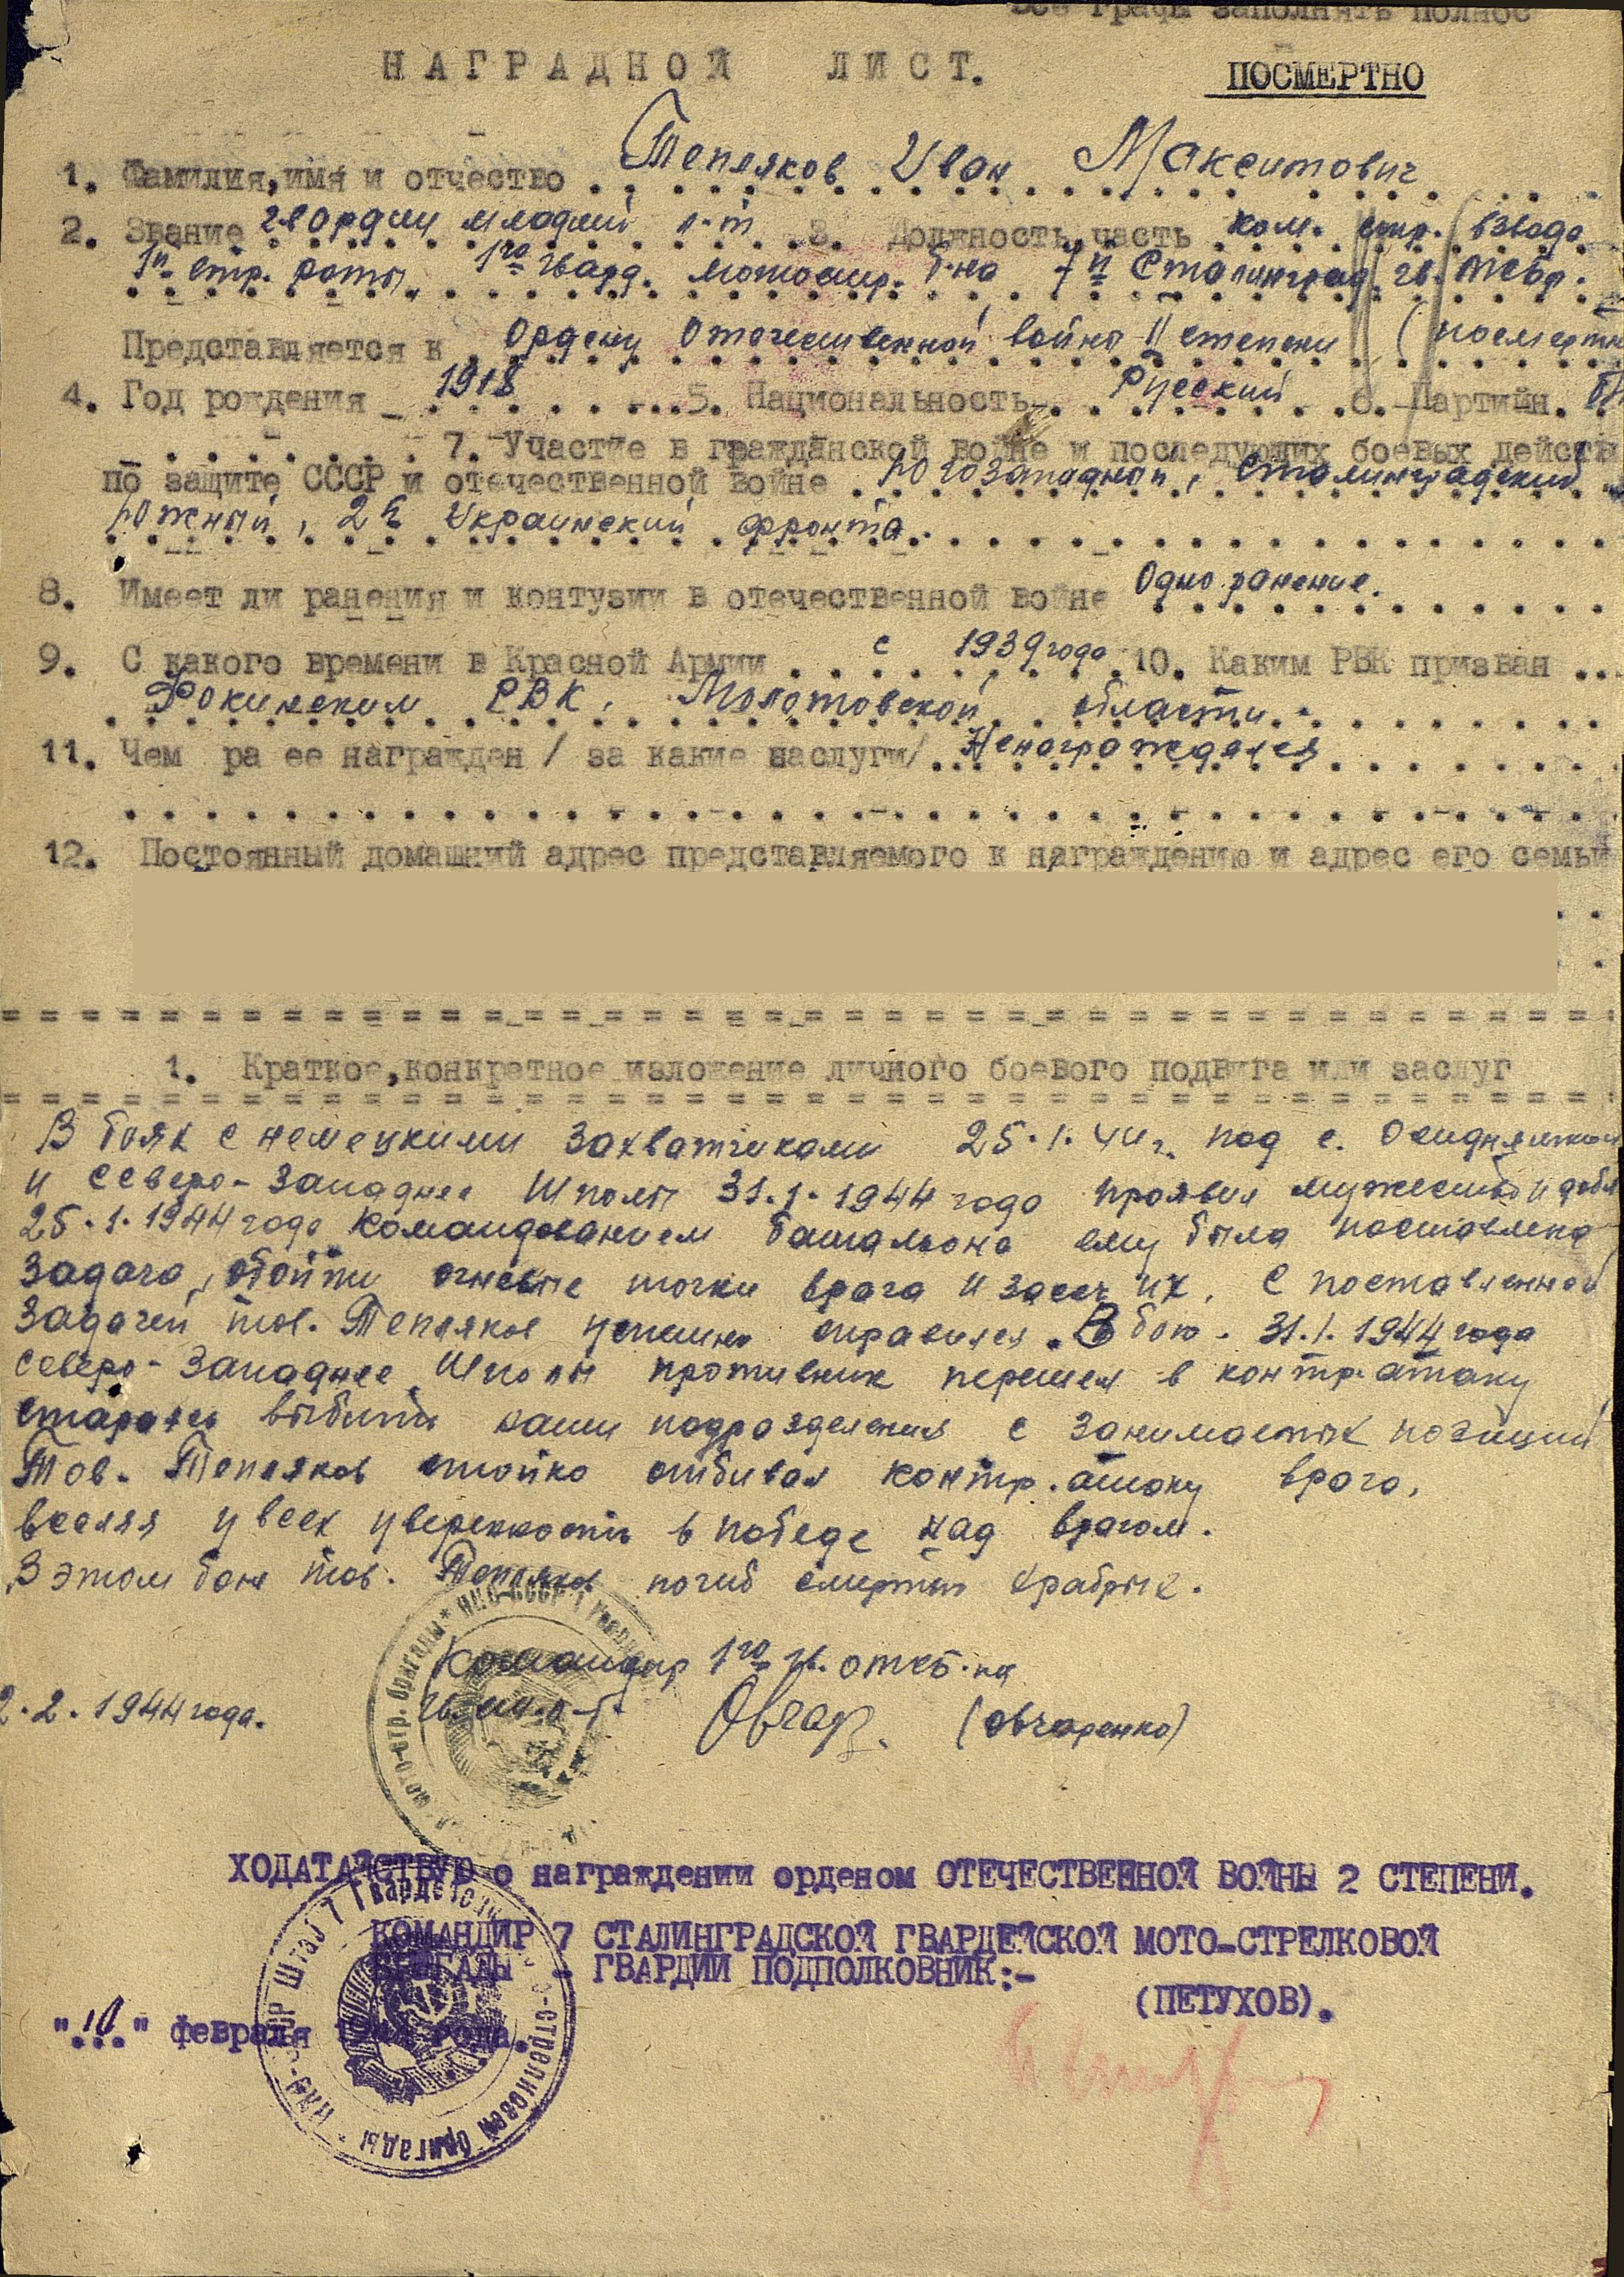 Все графы заполнять полнос
НАГРАДНОЙ ЛИСТ. ПОСМЕРТНО
1. Фамилия, имя и отчество Тепляков Иван Максимович
2. Звание гвардии младший л-т 3. Должность, часть ком. стр. взвода
1й стр. роты, 1го гвард. мотостр. б-на 7й Сталинград. гв. мсбр.
Представляется к Ордену Отечественной войны II степени (посмертн
4. Год рождения 1918 5. Национальность Русский 6. Партийн.
7. Участие в гражданской войне и последующих боевых действ
по защите СССР и отечественной войне Югозападный, Сталинградский
Южный, 2й Украинский фронта.
8. Имеет ли ранения и контузии в отечественной войне Одно ранение.
9. С какого времени в Красной Армии с 1939 года 10. Каким РВК призван
Фокинским РВК, Молотовской области.
11. Чем ра ее награжден / за какие заслуги/ Ненаграждался
12. Постоянный домашний адрес представляемого к награждению и адрес его семьи
1. Краткое, конкретное изложение личного боевого подвига или заслуг
В боях с немецкими захватчиками 25.1.44г. под с.
и северо-западнее Шполы 31.1.1944 года проявил мужество и
25.1.1944 года командованием баталиона ему была поставлена
задача, обойти огневые точки врага и их. С поставленной
задачей тов. Тепляков успешно справился. В бою 31.1.1944 года
северо-западнее Шполы противник перешел в контр.атаку
стараясь выбить наши подразделения с занимаемых позиций
Тов. Тепляков стойко отбивал контр.атаку врага,
вселяя у всех уверенность в победе над врагом.
В этом бою тов. Тепляков погиб смертью храбрых.
Командир 1го гв. отмсб-на
2.2.1944 года. Овчар. (Овчаренко)
ХОДАТАЙСТВУЮ о награждении орденом ОТЕЧЕСТВЕННОЙ ВОЙНЫ 2 СТЕПЕНИ.
КОМАНДИР 7 СТАЛИНГРАДСКОЙ ГВАРДЕЙСКОЙ МОТО-СТРЕЛКОВОЙ
БРИГАДЫ - ГВАРДИИ ПОДПОЛКОВНИК:-
(ПЕТУХОВ).
"10" февраля 1944 года.